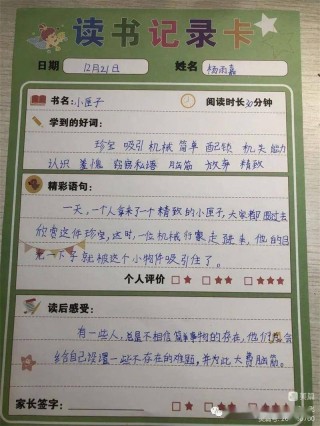 读书记录卡
日期 12月21日 姓名 杨雨嘉
书名:小匣子 阅读时长30分钟
学到的好词:
珍宝 吸引 机械 简单 配锁 机关 能力
认识 羞愧 窃窃私语 脑筋 放弃 精致
精彩语句:
一天,一个人拿来了一个精致的小匣子,大家都围过去
欣赏这件珍宝,这时,一位机械行家走进来,他的目
光一下子就被这个小物件吸引住了。
个人评价 ★ ★★ ★★★
读后感受:
有一些人,总是不相信简单事物的存在,他们会
给自己设置一些不存在的难题,并为此大费脑筋。
家长签字: ★ ★★ ★★★